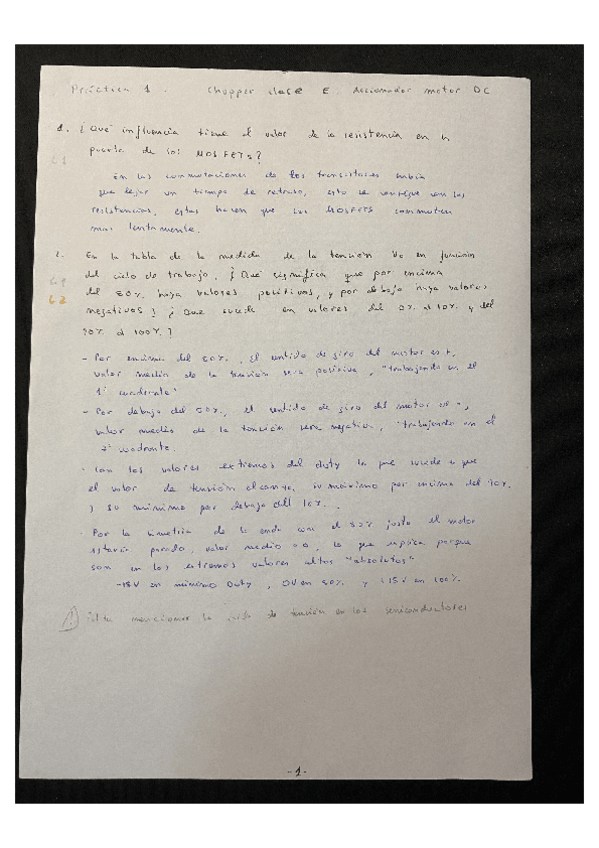 Práctica 1. Chopper clase E. Accionador motor DC
1. ¿Qué influencia tiene el valor de la resistencia en la
puerta de los MOSFETs?
En las conmutaciones de los transistores
que dejar un tiempo de retraso, esto se consigue con las
resistencias, estas hacen que los MOSFETS conmuten
mas lentamente.
2. En la tabla de la medida de la tensión Vo en función
del ciclo de trabajo, ¿Qué significa que por encima
del 50% haya valores positivos, y por debajo haya valores
negativos? ¿Que sucede en valores del 0% al 10% y del
90% al 100%?
- Por encima del 50%, el sentido de giro del motor es +,
valor medio de la tensión sera positivo, "trabajando en el
1º cuadrante"
- Por debajo del 50%, el sentido de giro del motor es -,
valor medio de la tensión sera negativo, "trabajando en el
2º cuadrante.
- Con los valores extremos del duty lo que sucede es que
el valor de tensión alcanza, su máximo por encima del 90%
y su mínimo por debajo del 10%.
- Por la simetria de la onda con el 50% justo el motor
estaría parado, valor medio = 0, lo que explica porque
son en los extremos valores altos "absolutos"
-15V en mínimo Duty, 0V en 50% y +15V en 100%.
falta mencionar la caída de tensión en los semiconductores
-1-